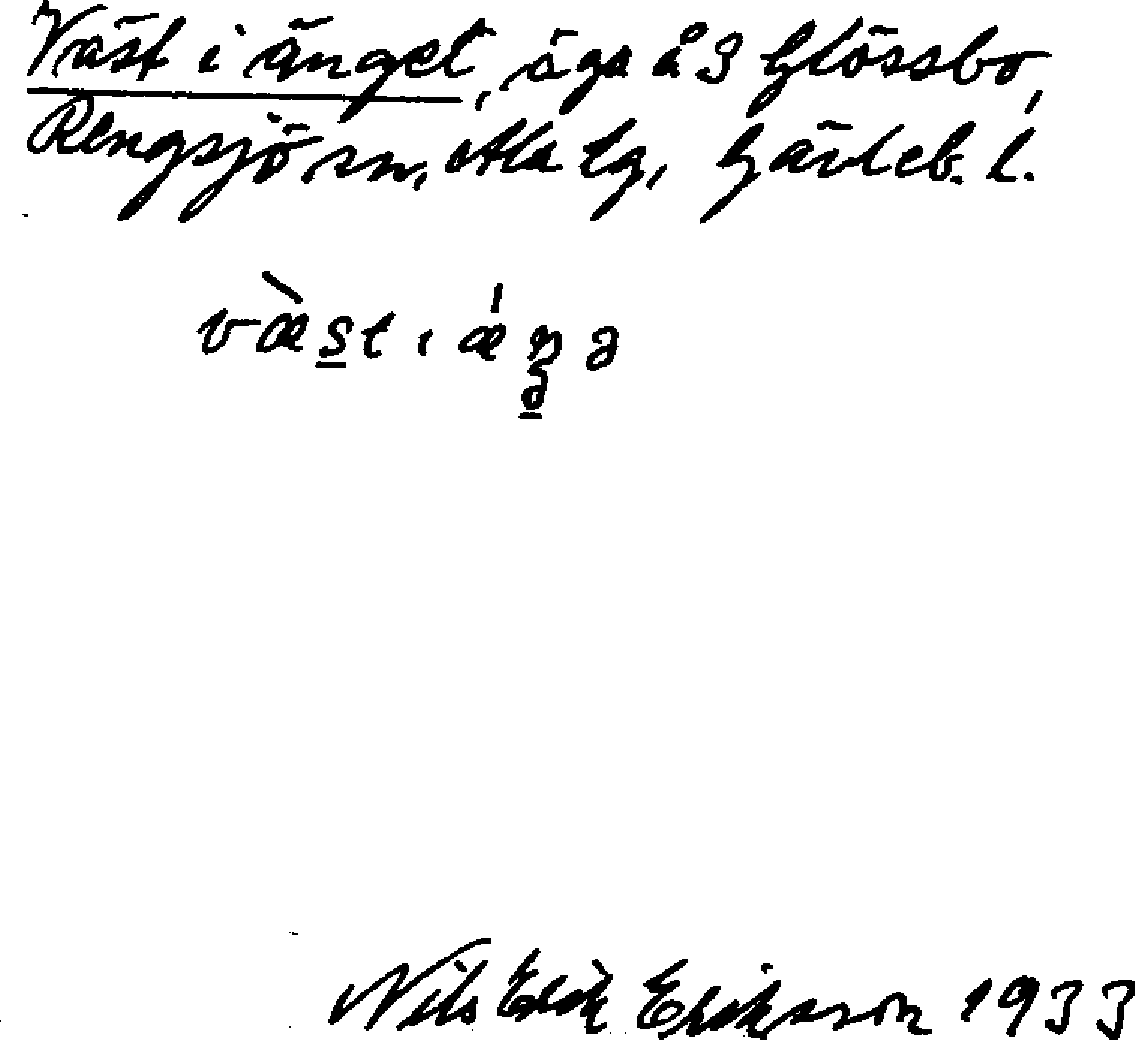 Väst i änget, äga å 3 Glössbo,
Rengsjö sn, Ala tg, Gävleb. l.
væ̀st ı ǽŋə
Nils Erik Eriksson 1933